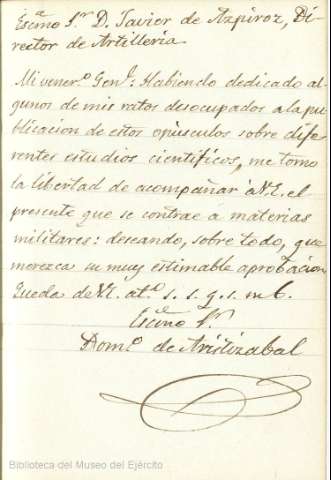 Escmo Sr. D. Javier de Azpiroz, Di
rector de Artilleria.
Mi venero. Genl: Habiendo dedicado al-
gunos de mis ratos desocupados á la pu
blicacion de estos opúsculos sobre dife
rentes estudios científicos, me tomo
la libertad de acompañar á V.E. el
presente que se contrae á materias
militares: deseando, sobre todo, que
merezca su muy estimable aprobacion
Queda de V.E. ato. s. s. q. s. m. b.
Escmo Sr.
Domo. de Aristizabal
Biblioteca del Museo del Ejército